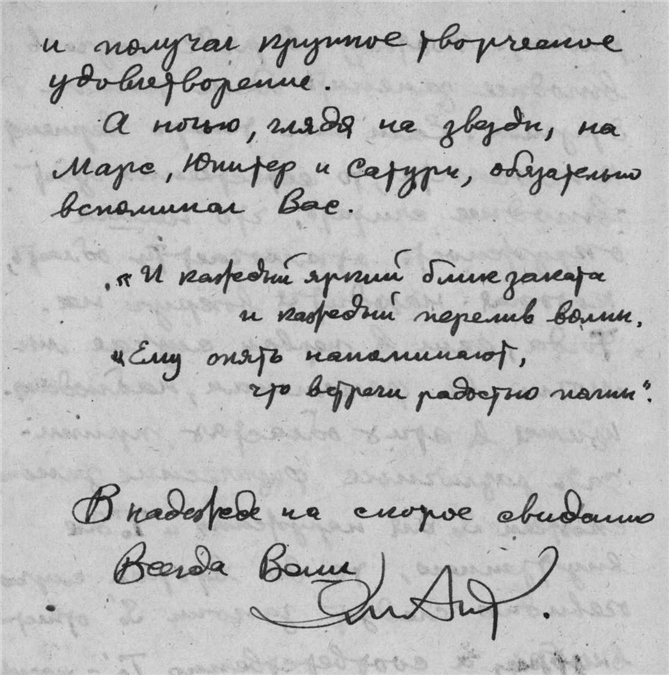 и получал крупное творческое
удовлетворение.
А ночью, глядя на звезды, на
Марс, Юпитер и Сатурн, обязательно
вспоминал Вас.
„И каждый яркий блик заката
и каждый перелив волны,
„Ему опять напоминают,
что встречи радостью полны".
В надежде на скорое свидание
Всегда Ваш